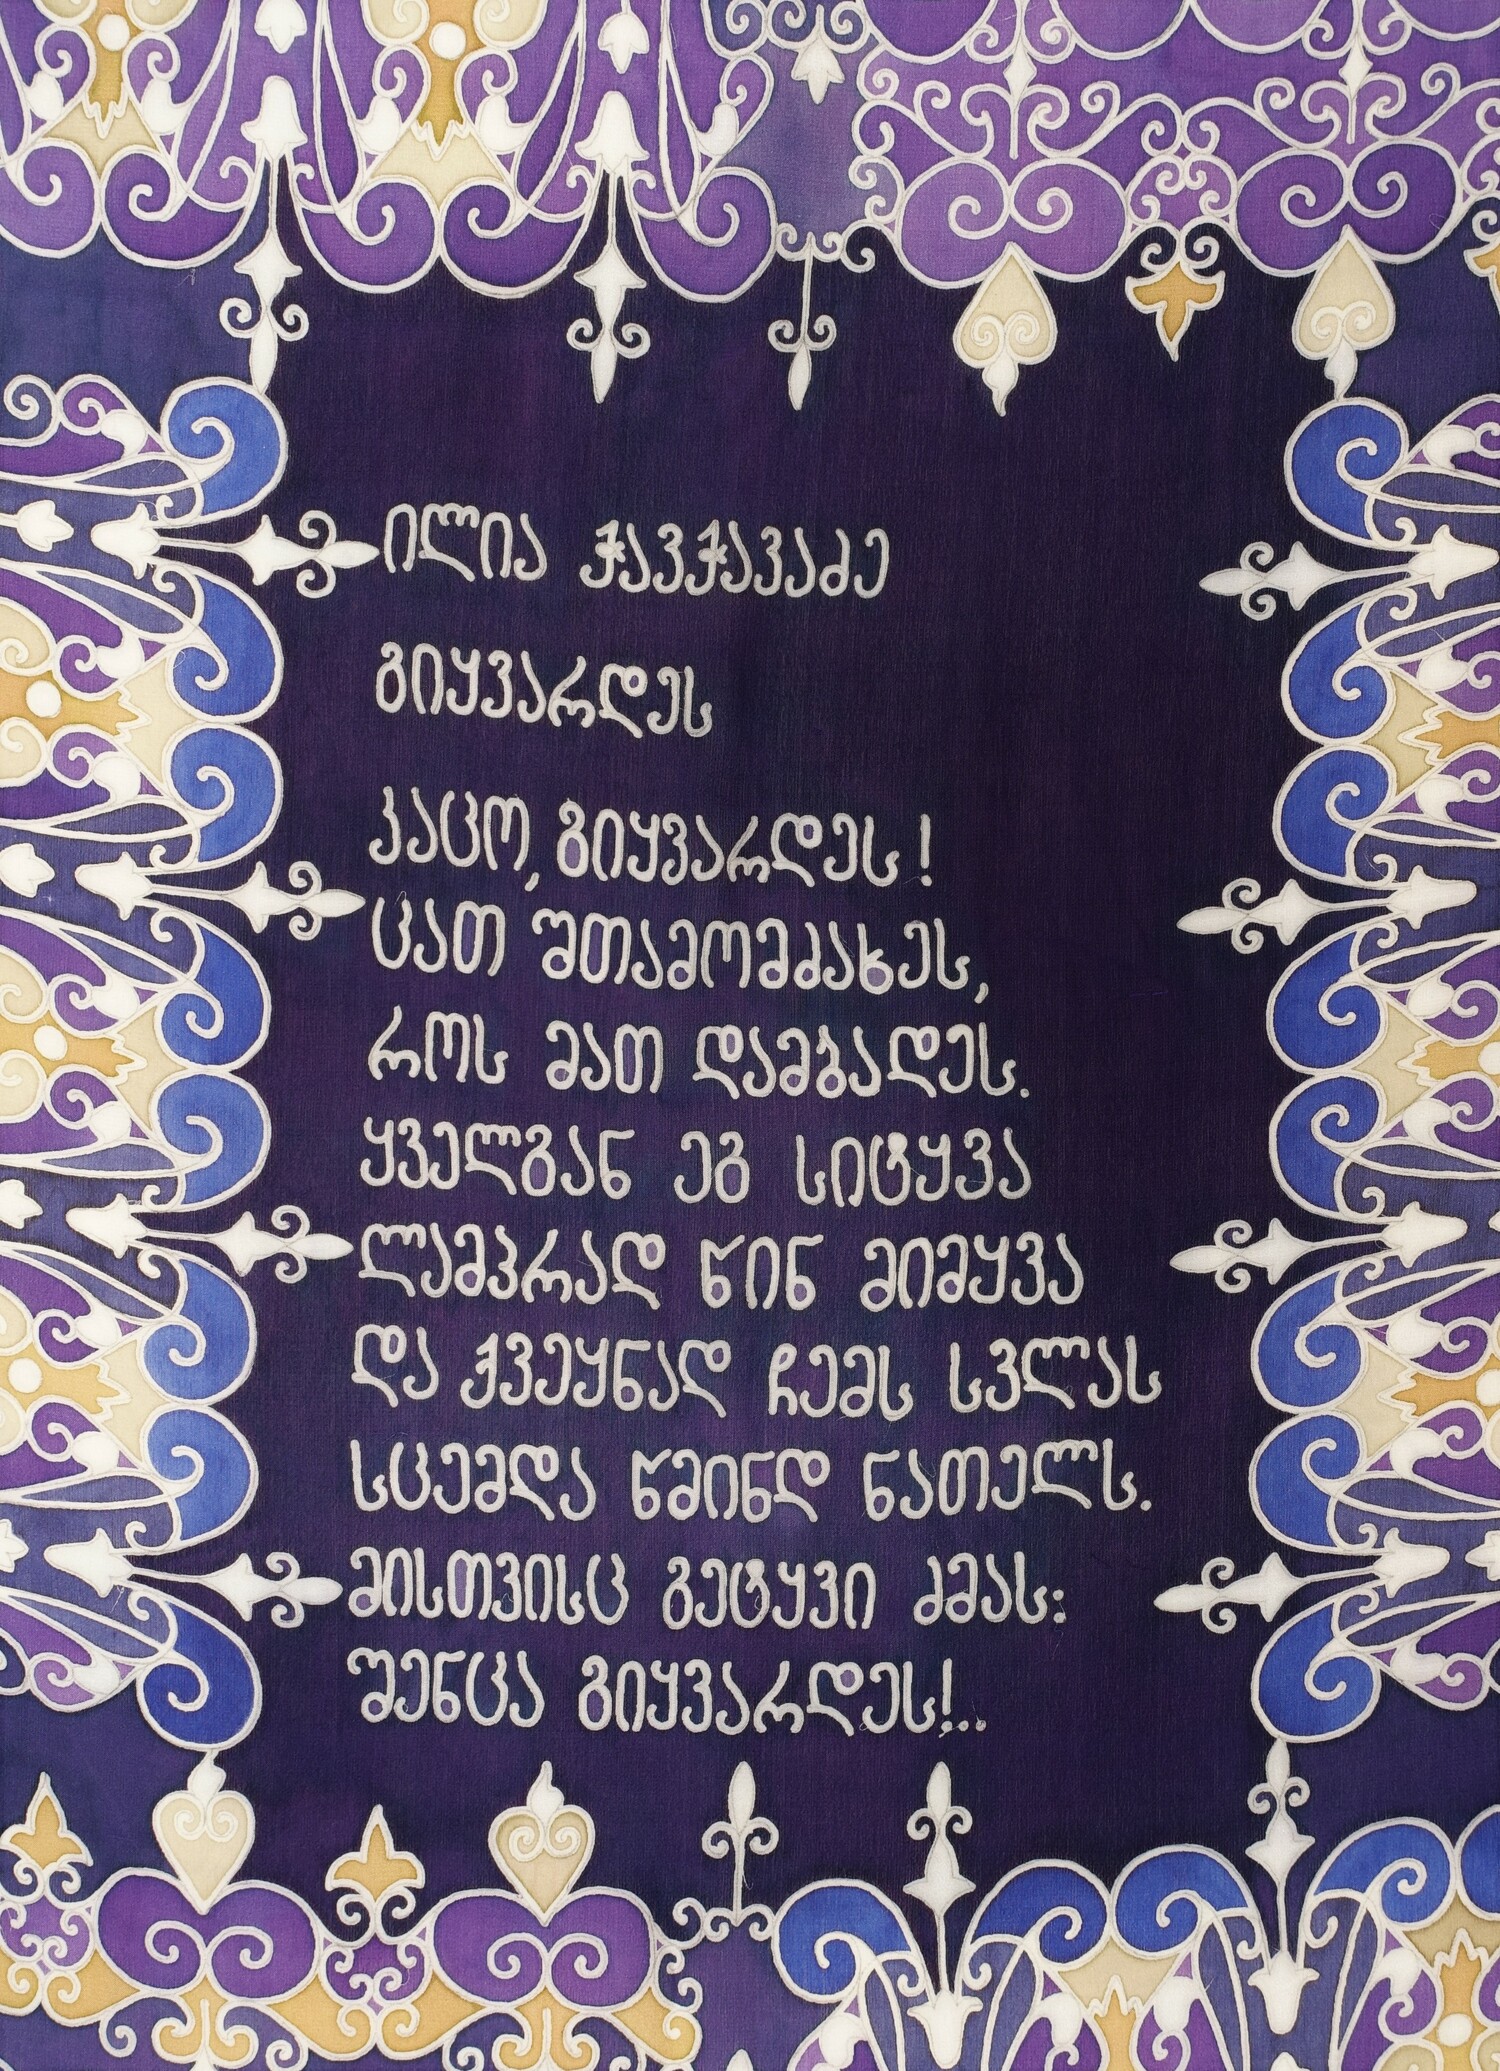 ილია ჭავჭავაძე
გიყვარდეს
კაცო, გიყვარდეს!
ცათ შთამომძახეს,
როს მათ დამბადეს.
ყველგან ეგ სიტყვა
ლამპრად წინ მიმყვა
და ქვეყნად ჩემს სვლას
სცემდა წმინდ ნათელს.
მისთვისც გეტყვი ძმას:
შენცა გიყვარდეს!..